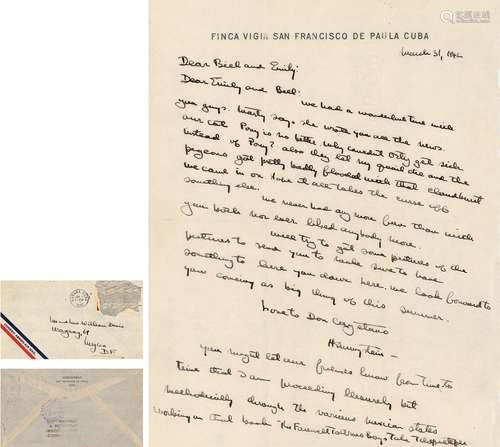 FINCA VIGIA SAN FRANCISCO DE PAULA CUBA
March 31, 1942
Dear Bill and Emily:
Dear Emily and Bill:
we had a wonderful time with
you guys. Marty says she wrote you all the news.
our cat Pony is no better. Why couldn't only get sick
instead of Pony? also they let my quail die and the
pigeons got pretty badly flooded with that cloudburst
we came in on. hope it all takes the curse off
something else.
we never had any more fun than with
you both nor ever liked anybody more.
will try to get some pictures of the
pictures to send you to make sure to have
something to lure you down here. we look forward to
your coming as big thing of this summer.
love to Don Cayetano
Hemingstein
you might let our friends know from time to
time that I am proceeding leisurely but
methodically through the various mexican states
working on that book The Farewell To Arms Boys in
William Davis
D.F.